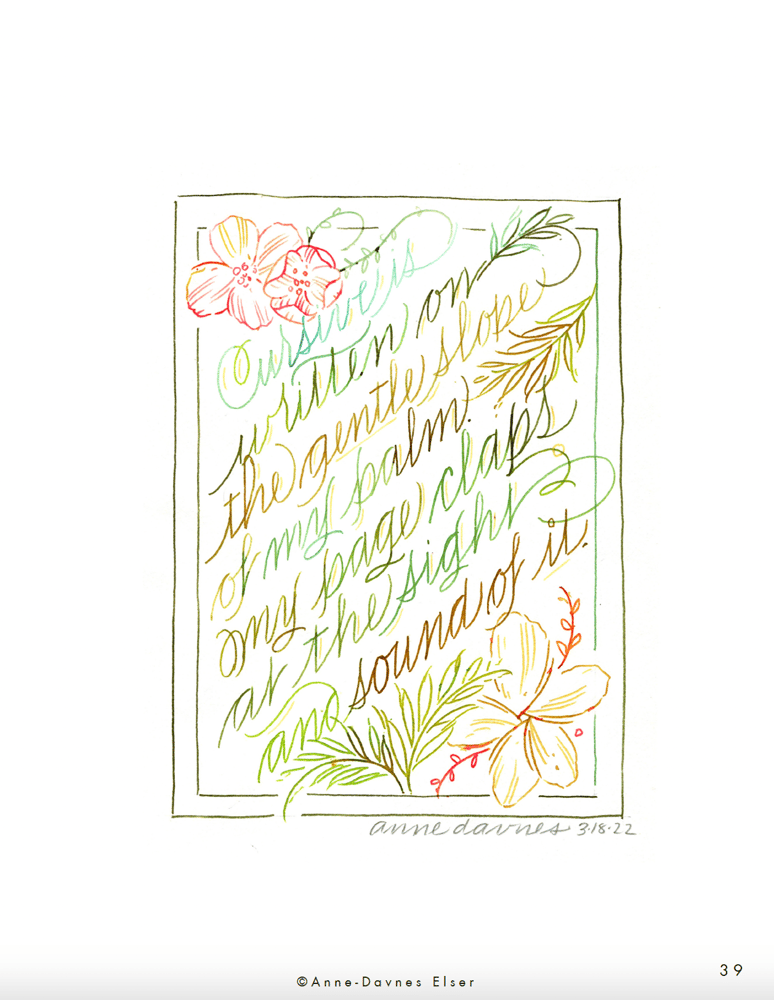 Cursive is
written on
the gentle slope
of my palm.
my page claps
at the sight
and sound of it.
anne davnes 3.18.22
39
©Anne-Davnes Elser